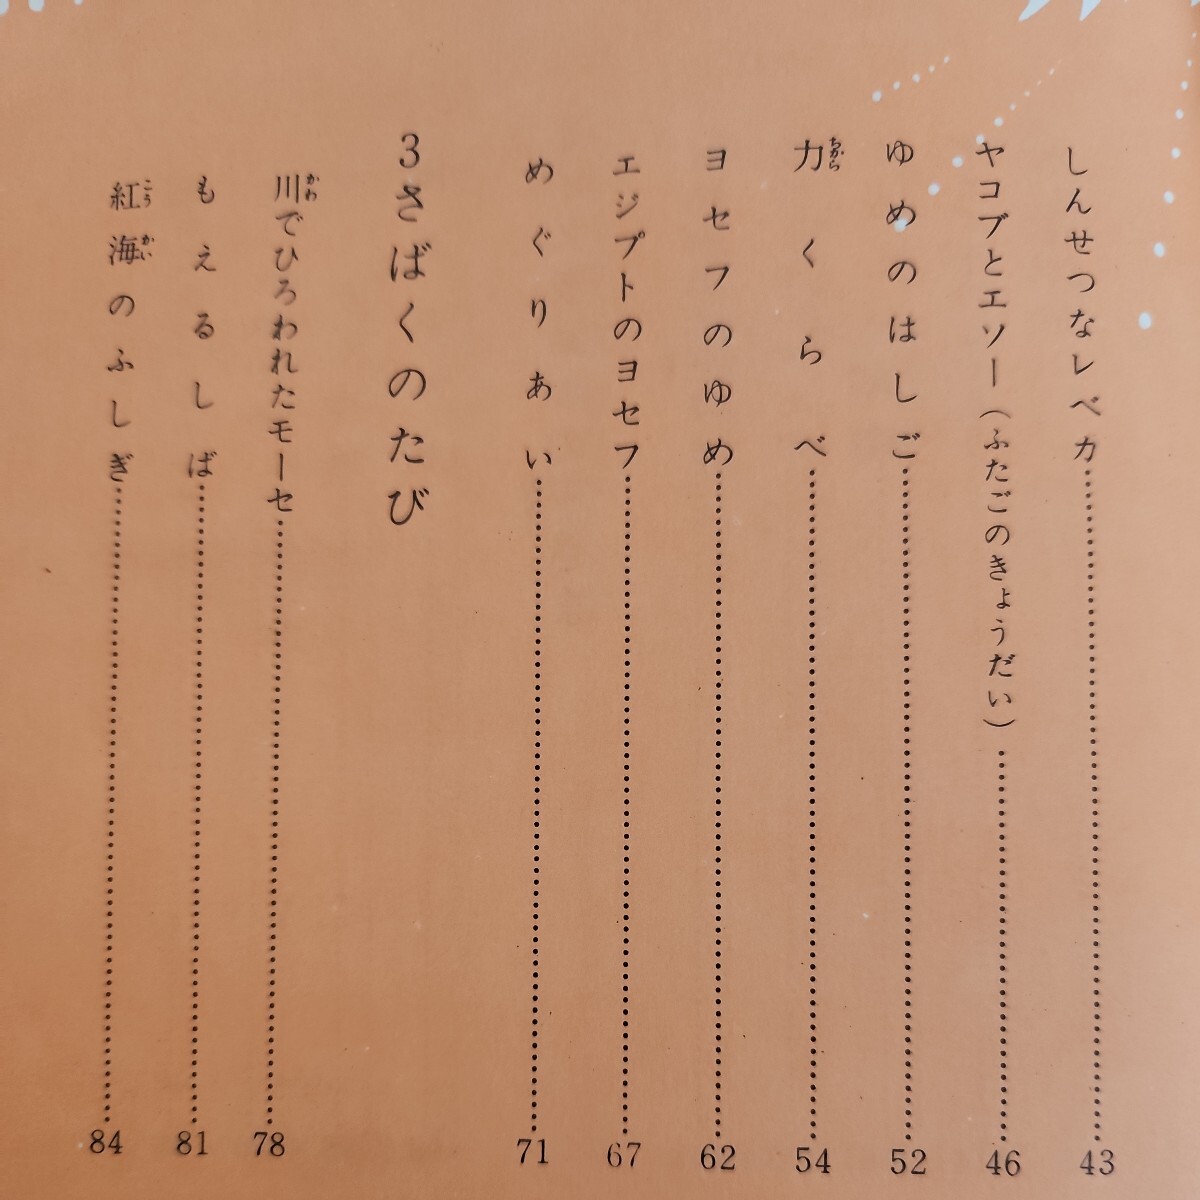 しんせつなレベカ………43
ヤコブとエソー（ふたごのきょうだい）………46
ゆめのはしご………52
力くらべ………54
ちから
ヨセフのゆめ………62
エジプトのヨセフ………67
めぐりあい………71
3さばくのたび
川でひろわれたモーセ………78
かわ
もえるしば………81
紅海のふしぎ………84
こうかい